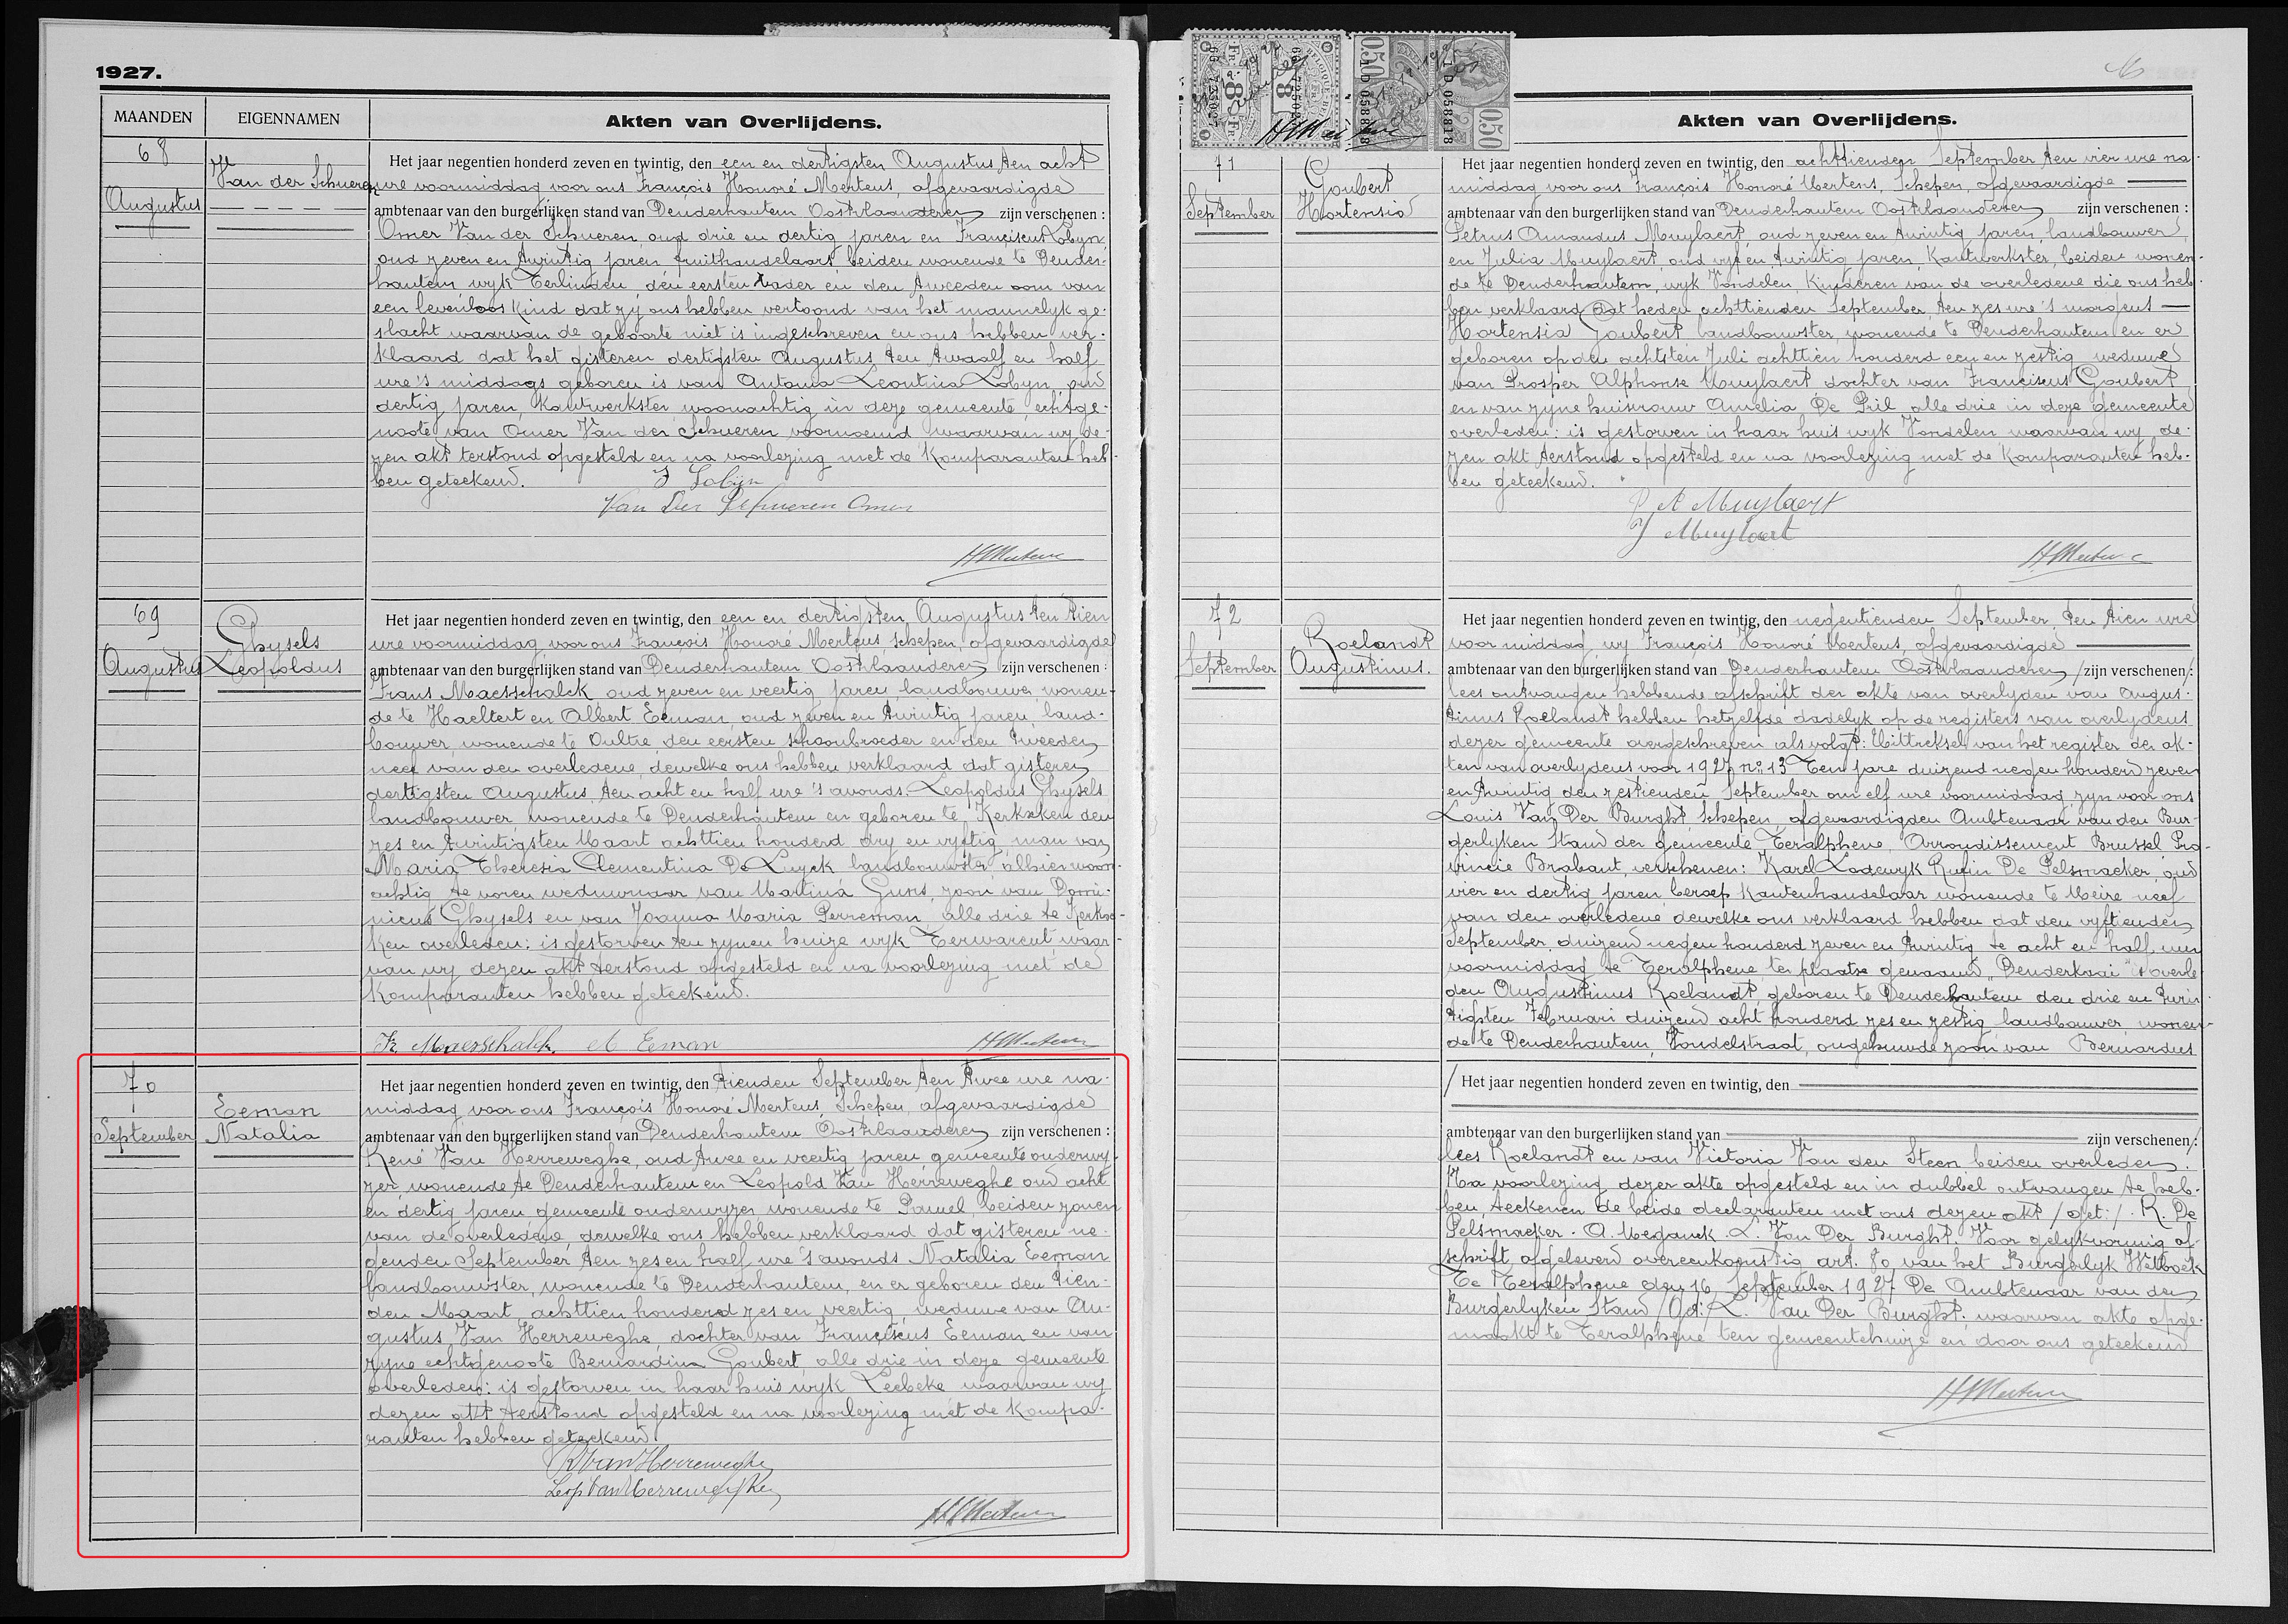 1927.
MAANDEN
EIGENNAMEN
Akten van Overlijdens.
68
Augustus
Van der Schueren
Het jaar negentien honderd zeven en twintig, den een en dertigsten Augustus ten acht
ure voormiddag voor ons François Honoré Mertens, afgevaardigde
ambtenaar van den burgerlijken stand van Denderhautem Oostvlaanderen zijn verschenen :
Omer Van der Schueren, oud drie en dertig jaren en Franciscus Lobyn,
oud zeven en twintig jaren fruithandelaars, beiden wonende te Dender-
hautem wyk Terlinden, den eersten vader en den tweeden oom van
een levenloos kind dat zy ons hebben vertoond van het mannelyk ge-
slacht waarvan de geboorte niet is ingeschreven en ons hebben ver-
klaard dat het gisteren dertigsten Augustus ten twaalf en half
ure 's middags geboren is van Antonia Leontina Lobyn, oud
dertig jaren, kantwerkster, woonachtig in deze gemeente, echtge-
noote van Omer Van der Schueren voornoemd waarvan wy de-
zen akt terstond opgesteld en na voorlezing met de komparanten heb-
ben geteekend.
J Lobyn
Van Der Schueren Omer
HMertens
69
Augustus
Ghysels
Leopoldus
Het jaar negentien honderd zeven en twintig, den een en dertigsten Augustus ten tien
ure voormiddag, voor ons François Honoré Mertens, schepen, afgevaardigde
ambtenaar van den burgerlijken stand van Denderhautem Oostvlaanderen zijn verschenen :
Frans Maesschalck, oud zeven en veertig jaren, landbouwer, wonen-
de te Haeltert en Albert Eeman, oud zeven en twintig jaren, land-
bouwer, wonende te Oultre, den eersten schoonbroeder en den tweeden
neef van den overledene, dewelke ons hebben verklaard dat gisteren
dertigsten Augustus, ten acht en half ure 's avonds Leopoldus Ghysels
landbouwer, wonende te Denderhautem en geboren te Kerksken den
zes en twintigsten Maart achttien honderd dry en vyftig, man van
Maria Theresia Clementina De Luyck landbouwster, alhier woon-
achtig, te voren weduwnaar van Martina Guns, zoon van Domi-
nicus Ghysels en van Joanna Maria Perreman, alle drie te Kerks-
ken overleden: is gestorven ten zynen huize wyk Terwarent, waar-
van wy dezen akt terstond opgesteld en na voorlezing met de
komparanten hebben geteekend.
Fr. Maesschalck. A Eeman HMertens
70
September
Eeman
Natalia
Het jaar negentien honderd zeven en twintig, den tienden September ten twee ure na-
middag voor ons François Honoré Mertens, Schepen, afgevaardigde
ambtenaar van den burgerlijken stand van Denderhautem Oostvlaanderen zijn verschenen :
René Van Herreweghe, oud twee en veertig jaren, gemeente onderwy-
zer, wonende te Denderhautem en Leopold Van Herreweghe oud acht
en dertig jaren gemeente onderwyzer wonende te Pamel, beiden zonen
van de overledene, dewelke ons hebben verklaard dat gisteren ne-
genden September ten zes en half ure 's avonds Natalia Eeman
landbouwster, wonende te Denderhautem, en er geboren den tien-
den Maart achttien honderd zes en veertig, weduwe van Au-
gustus Van Herreweghe, dochter van Franciscus Eeman en van
zyne echtgenoote Bernardina Goubert, alle drie in deze gemeente
overleden: is gestorven in haar huis wyk Leebeke waarvan wy
dezen akt terstond opgesteld en na voorlezing met de kompa-
ranten hebben geteekend.
RVanHerreweghe
Leop VanHerreweghe
HMertens
Akten van Overlijdens.
71
September
Goubert
Hortensia
Het jaar negentien honderd zeven en twintig, den achttienden September ten vier ure na-
middag voor ons François Honoré Mertens, Schepen, afgevaardigde
ambtenaar van den burgerlijken stand van Denderhautem Oostvlaanderen zijn verschenen :
Petrus Amandus Muylaert, oud zeven en twintig jaren, landbouwer,
en Julia Muylaert, oud vyf en twintig jaren, Kantwerkster, beiden wonen-
de te Denderhautem, wyk Vondelen, Kinderen van de overledene die ons heb-
ben verklaard dat heden achttienden September, ten zes ure 's morgens
Hortensia Goubert landbouwster, wonende te Denderhautem en er
geboren op den achtsten Juli achttien honderd een en zestig, weduwe
van Prosper Alphonse Muylaert dochter van Franciscus Goubert
en van zyne huisvrouw Amelia De Pril alle drie in deze gemeente
overleden: is gestorven in haar huis wyk Vondelen, waarvan wy de-
zen akt terstond opgesteld en na voorlezing met de komparanten heb-
ben geteekend.
P A Muylaert
J Muylaert
HMertens
72
September
Roelandt
Augustinus.
Het jaar negentien honderd zeven en twintig, den negentienden September, ten tien ure
voor middag wy François Honoré Mertens, afgevaardigde
ambtenaar van den burgerlijken stand van Denderhautem Oostvlaanderen /zijn verschenen/:
lees ontvangen hebbende afschrift der akte van overlyden van Augus-
tinus Roelandt hebben hetzelfde dadelyk op de registers van overlydens
dezer gemeente overgeschreven als volgt: Uittreksel van het register der ak-
ten van overlydens voor 1927 no 13 Ten jare duizend negen honderd zeven
en twintig den zestienden September om elf ure voormiddag zyn voor ons
Louis Van Der Burght, Schepen, afgevaardigden Ambtenaar van den Bur-
gerlyken Stand der gemeente Teralphene, Arrondissement Brussel, Pro-
vincie Brabant, verschenen: Karel Lodewyk Rufin De Pelsmaeker, oud
vier en dertig jaren, beroep Kantenhandelaar wonende te Meire neef
van den overledene dewelke ons verklaard hebben dat den vyftienden
September, duizend negen honderd zeven en twintig te acht en half uur
voormiddag te Teralphene, ter plaatse genaamd „Denderkaai" is overle-
den Augustinus Roelandt, geboren te Denderhautem den drie en twin-
tigsten Februari duizend acht honderd zes en zestig, landbouwer, wonen-
de te Denderhautem, Vondelstraat, ongehuwde zoon van Bernardus
/ Het jaar negentien honderd zeven en twintig, den
ambtenaar van den burgerlijken stand van zijn verschenen/:
lees Roelandt en van Victoria Van den Steen, beiden overleden.
Na voorlezing dezer akte opgesteld en in dubbel ontvangen te heb-
ben, teekenen de beide declaranten met ons dezen akt /get:/. K. De
Pelsmaeker. O. Meganck. L. Van Der Burght. Voor gelykvormig af-
schrift afgeleverd overeenkomstig art. 80 van het Burgerlyk Wetboek
Te Teralphene den 16 September 1927 De Ambtenaar van den
Burgerlyken Stand /Get:/ L. Van Der Burght. waarvan akte opge-
maakt te Teralphene ten gemeentehuize en door ons geteekend
HMertens